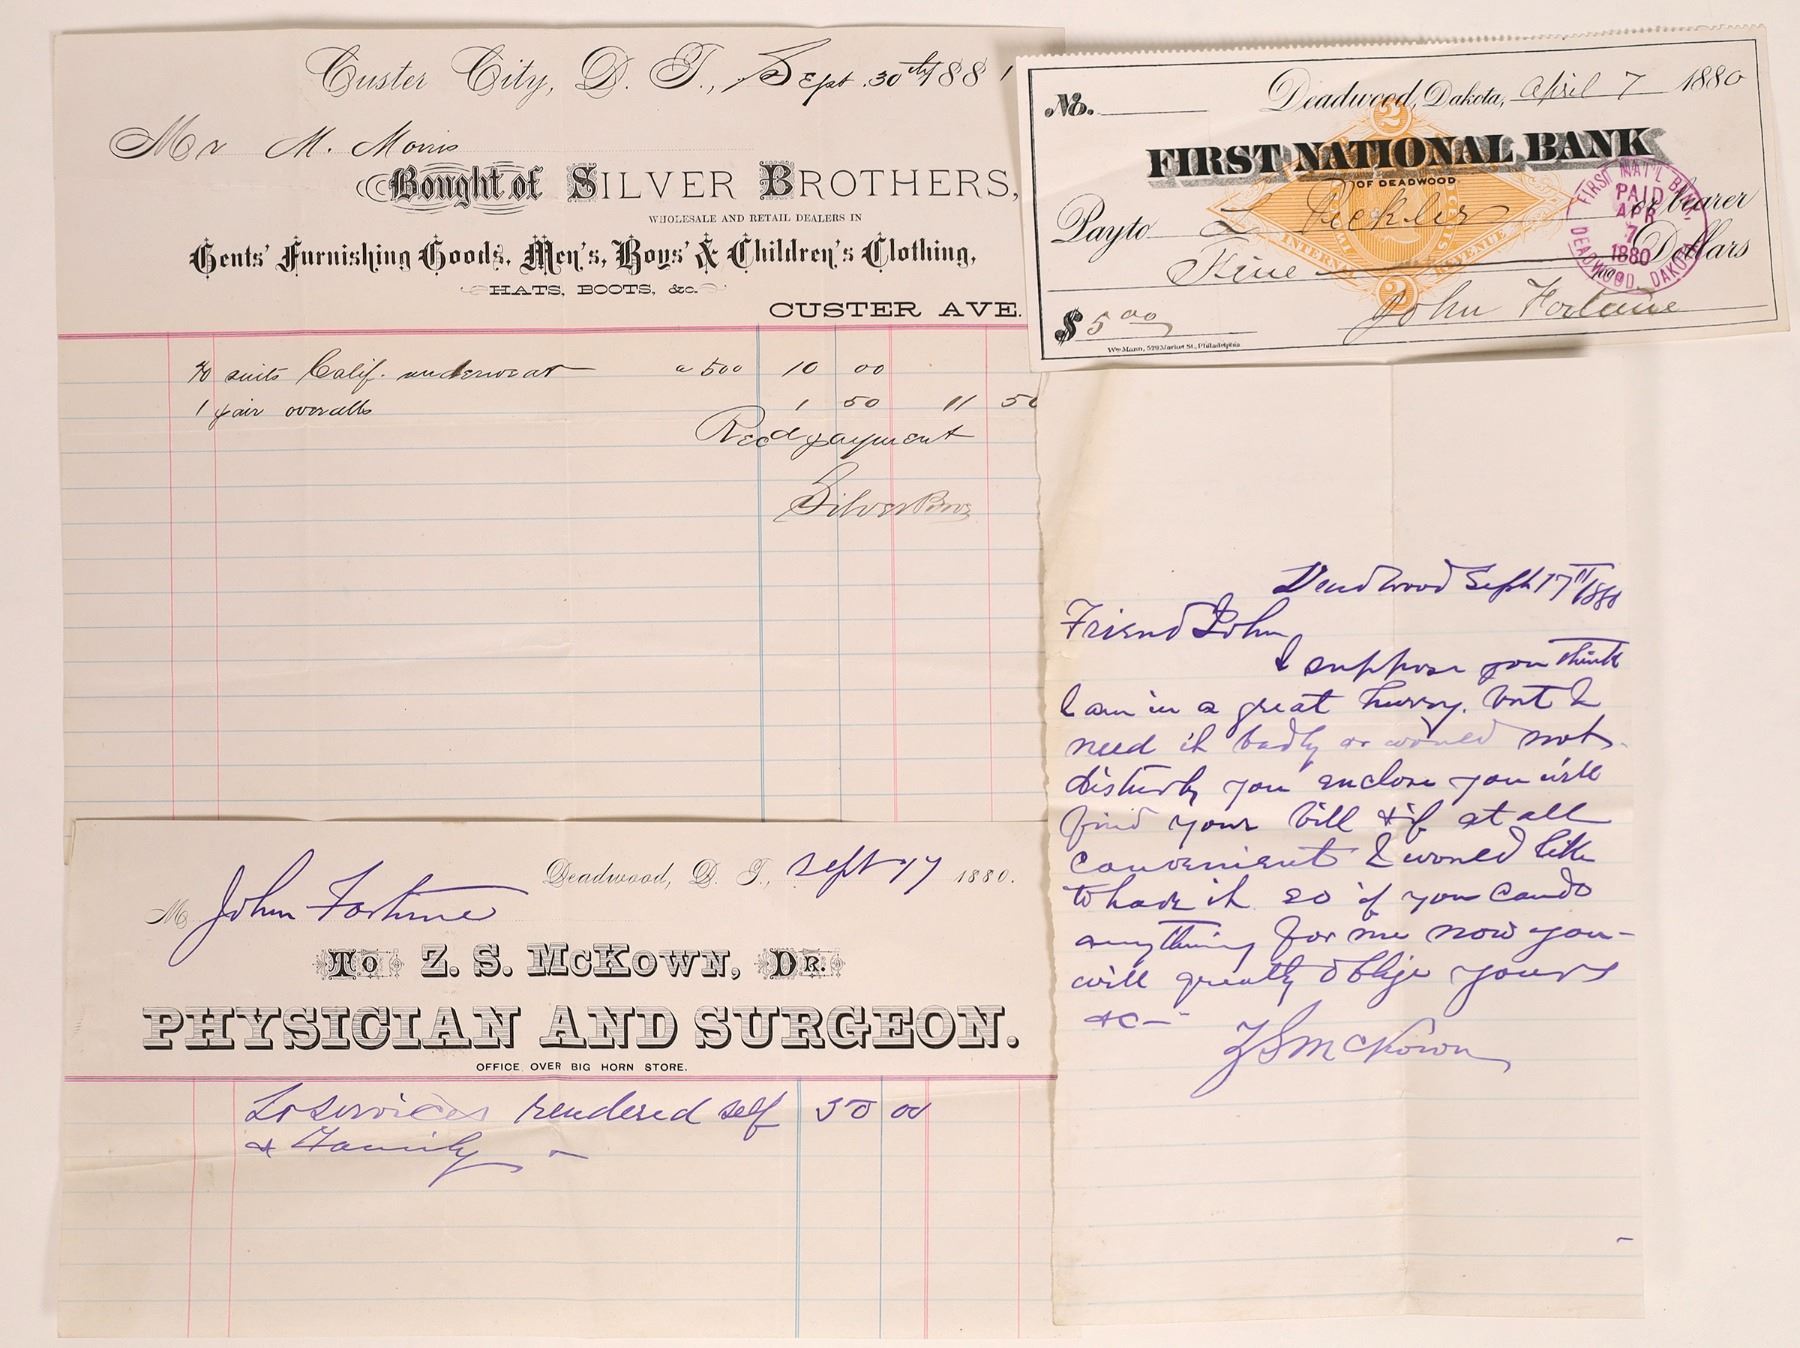 Custer City, D. T., Sept. 30th 1881
Mr M. Morris
Bought of SILVER BROTHERS,
WHOLESALE AND RETAIL DEALERS IN
Gents' Furnishing Goods, Men's, Boys' & Children's Clothing,
HATS, BOOTS, &c.
CUSTER AVE.
suits Calif. underwear a 500 10 00
1 pair overalls 1 50 11 50
Recd payment
Silver Bros
No. Deadwood, Dakota, April 7 1880
FIRST NATIONAL BANK
OF DEADWOOD
Pay to or bearer
Five Dollars
$ 5 00 John Fortune
Wm Mann, 529 Market St., Philadelphia
2
INTERNAL REVENUE
2
FIRST NAT'L BANK.
PAID
APR
7
1880
DEADWOOD, DAKOTA
Deadwood Sept 17th 1880
Friend John
I suppose you think
I am in a great hurry. but I
need it badly or would not
disturb you enclose you will
find your bill & if at all
convenient I would like
to have it so if you can do
anything for me now you
will greatly oblige yours
&c—
Z S McKown
Deadwood, D. T., Sept 17 1880.
M John Fortune
To Z. S. McKown, Dr.
PHYSICIAN AND SURGEON.
OFFICE OVER BIG HORN STORE.
To services rendered self 50 00
& Family —